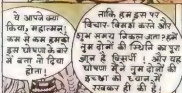 ये आपने क्या
किया, महात्मन्!
कम से कम हमको
इस घोषणा के बारे
में बता तो दिया
होता!
ताकि हम इस पर
विचार-विमर्श करते और
शुभ समय निकल जाता? हमें
तुम दोनों की स्थिति का पूरा
ज्ञान है विसर्पी! और यह
घोषणा हमने तुम दोनों की
इच्छा को ध्यान में
रखकर ही की है।